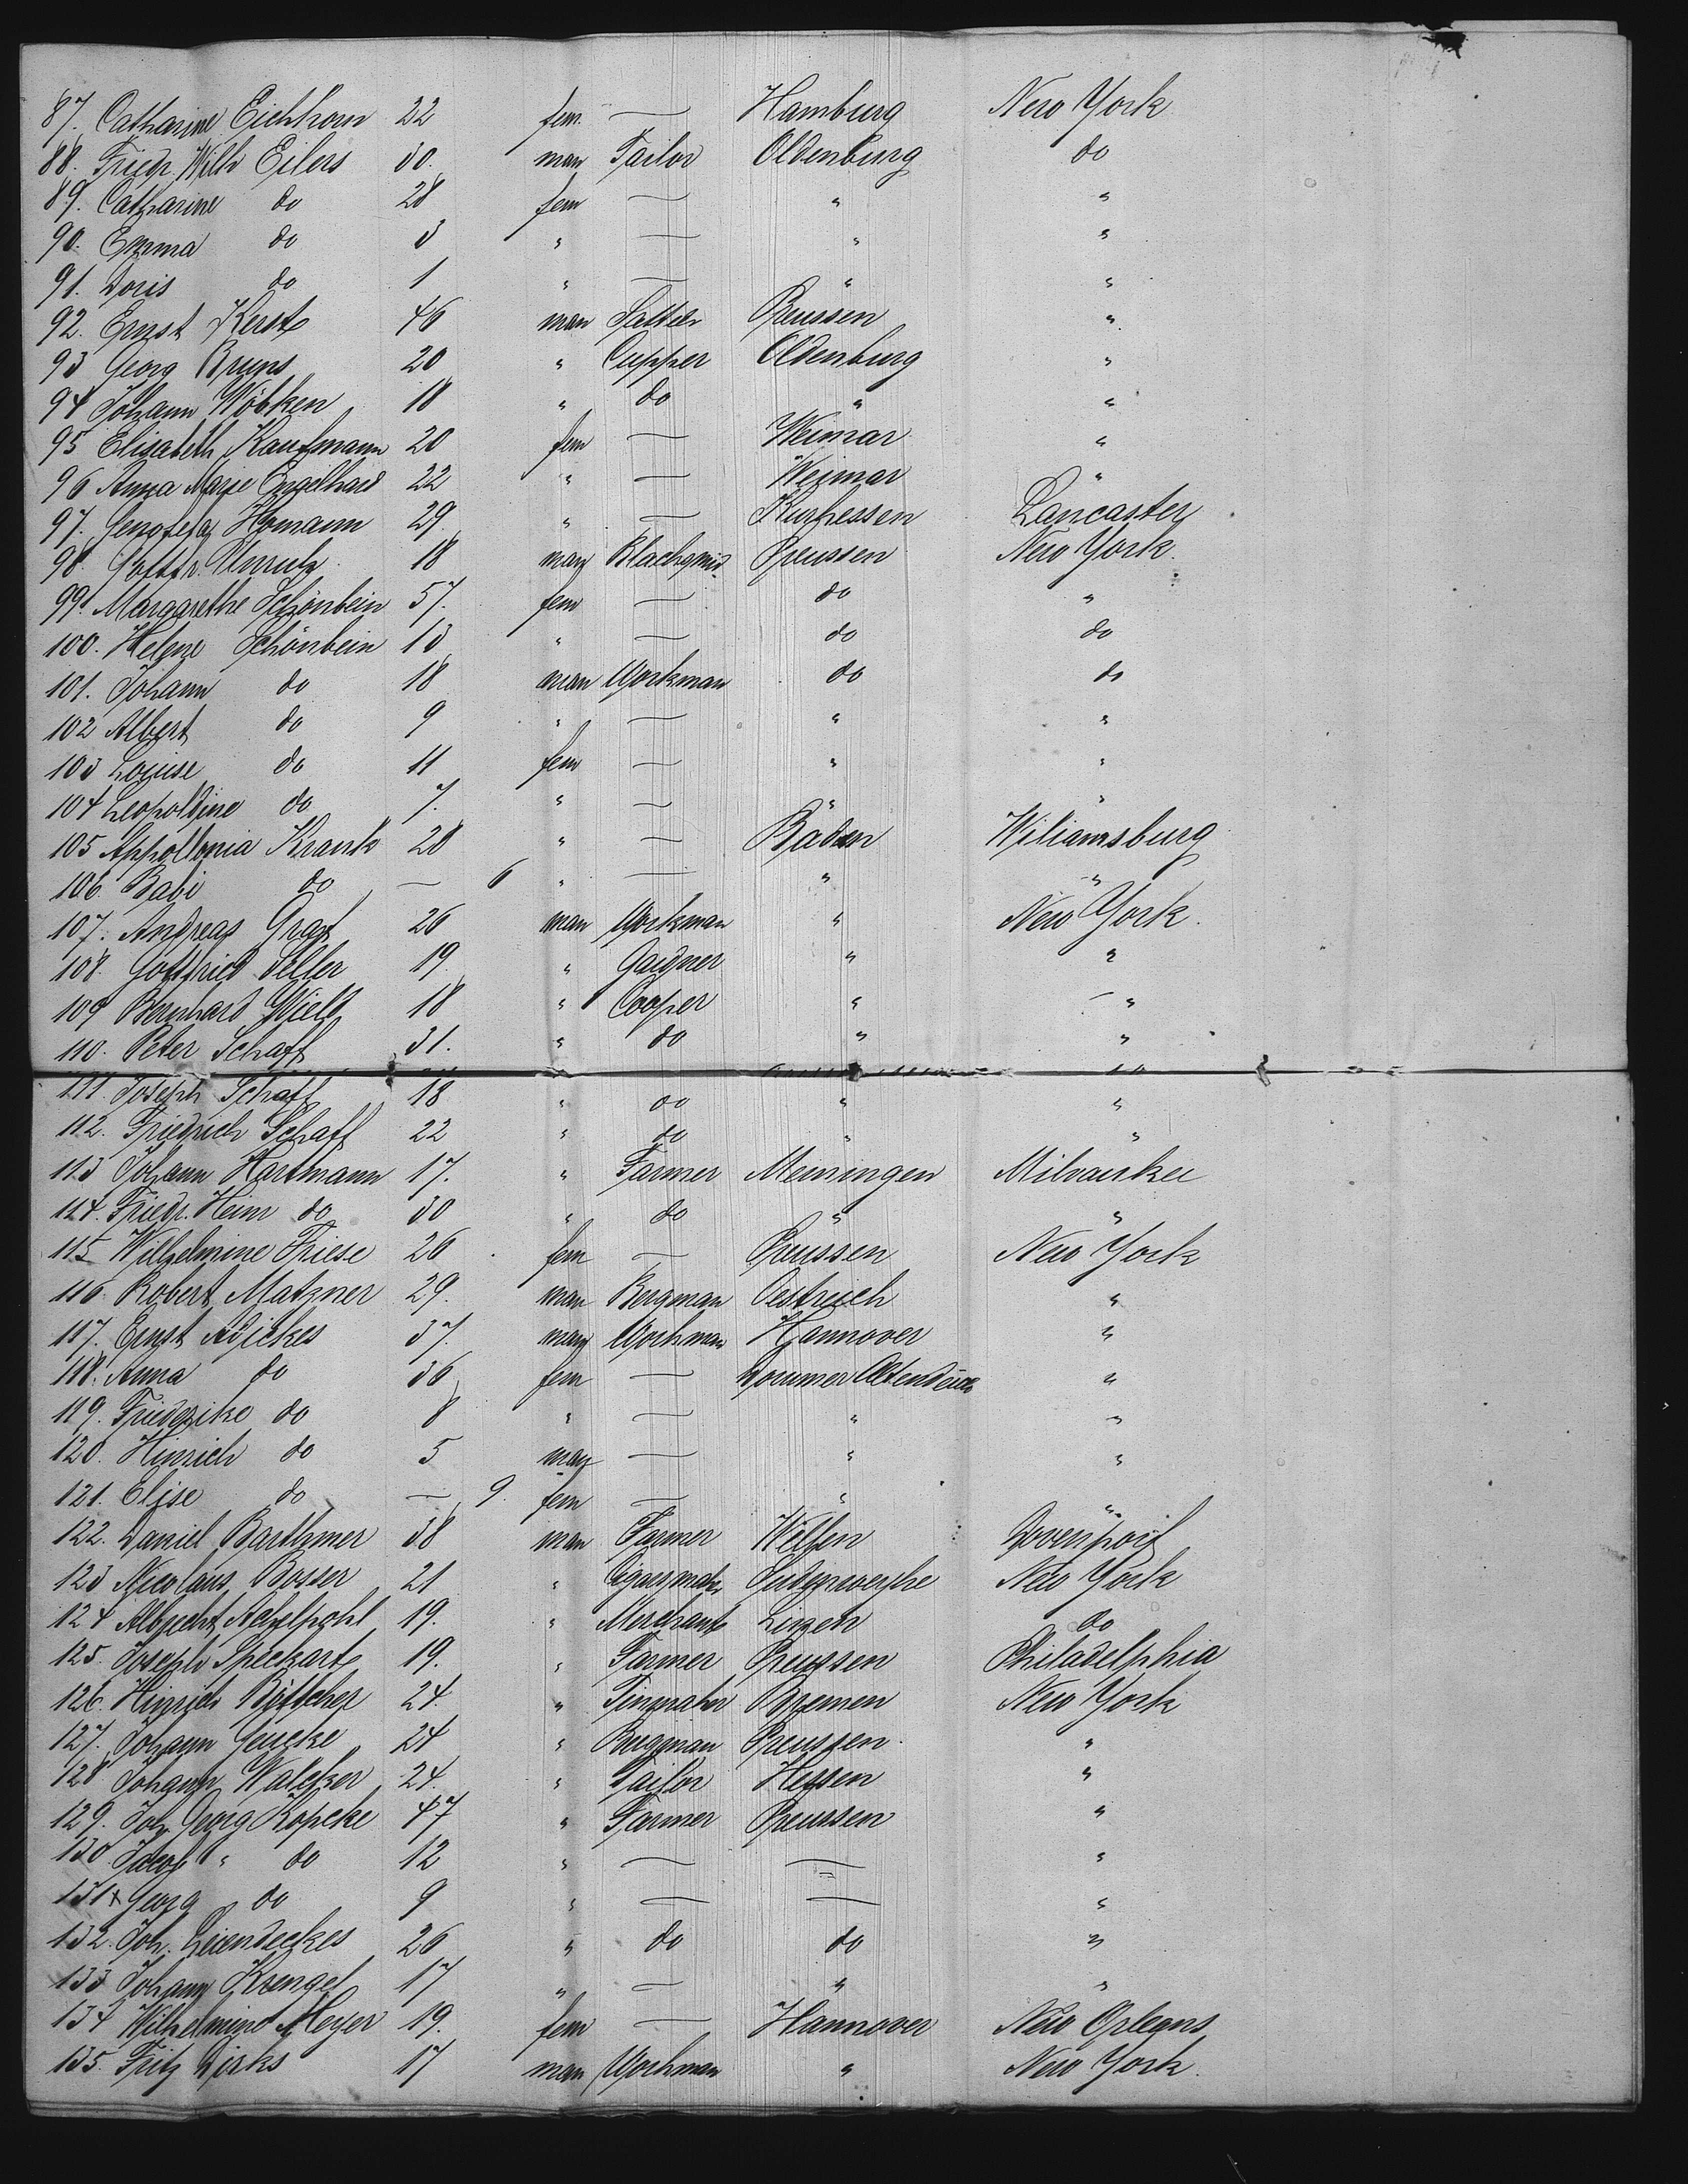 87. Catharine Eichhorn 22 fem. — Hamburg New York
88. Friedr. Wilh Eilers 30. man Tailor Oldenburg do
89. Catharine do 28 fem — " "
90. Emma do 3 " — " "
91. Doris do 1 " — " "
92. Ernst Kerst 46 man Sattler Preussen "
93 Georg Bruns 20 " Cupper Oldenburg "
94 Johann Wöbken 18 " do " "
95 Elisabeth Kaufmann 20 fem — Weimar "
96 Anna Marie Engelhard 22 " — Weimar "
97. Homann 29 " — Kurhessen Lancaster
98. Unruh 18 man Preussen New York
99. Margarethe Schönbein 57. fem — do "
100. Helene Schönbein 13 " — do do
101. Johann do 18 man Workman do do
102 Albert do 9 " — " "
103 Louise do 11 fem — " "
104 Leopoldine do 7. " — " "
105 Appollonia Krank 28 " — Baden Wiliamsburg
106. Babi do — 6 " — " "
107. Andreas Graf 26 man Workman " New York.
108. Gottfried Seller 19 " Gardner " "
109 Bernhard 18 " Cooper " "
110. Peter Schaff 31. " do " "
111. Joseph Schaff 18 " do " "
112. Friedrich Schaff 22 " do " "
113 Johann Hartmann 17. " Farmer Meiningen Milvaukee
114. Friedr. Heinr do 30 " do " "
115 Wilhelmine Friese 26 fem — Preussen New York
116. Robert Matzner 29. man Bergman Oestreich "
117. Ernst Adickes 37. man Workman Hannover "
118. Anna do 36 fem — "
119. Friederike do 8 " — " "
120. Hinrich do 5 man — " "
121. Elise do — 9. fem — " "
122. Daniel Barthmer 38 man Farmer
123 Nicolaus Bosser 21 " New York
124 Albrecht 19. " Merchant Lingen do
125. Joseph Speckart 19. " Farmer Preussen Philadelphia
126. Hinrich Böttcher 24. " Bremen New York
127. Johann 24 " Bergman Preussen. "
128 Johann Walcker 24. " Tailor Hessen "
129. Joh. Georg Köpcke 47 " Farmer Preussen "
130 Jacob " do 12 " — — "
131 x Georg do 9 " — — "
132. Joh. Leiendeckes 26 " do do "
133 Johann Krengel 17 " — " "
134 Wilhelmine Meyer 19. fem — Hannover New Orleans
135. Fritz Dirks 17 man Workman " New York.